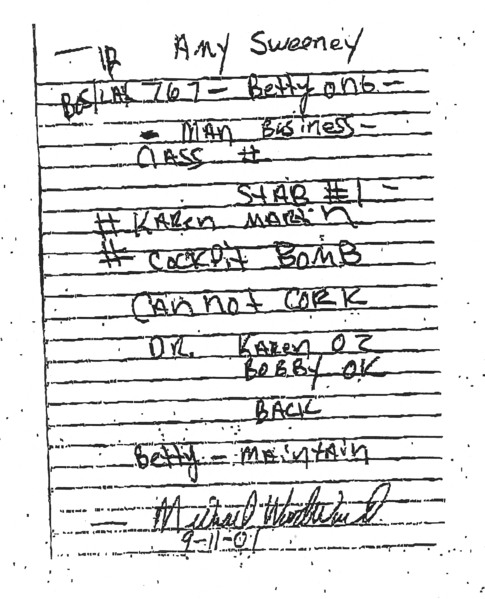 Amy Sweeney
12
BOS/LAX 767 - Betty ong -
- MAN Business -
CLASS #
STAB #1 -
# KAREN MARTIN
# COCKPit BOMB
CAnnot CORK
DR. KAREN O2
BOBBY OK
BACK
Betty - MAiNtAiN
Michael Woodward
9-11-01